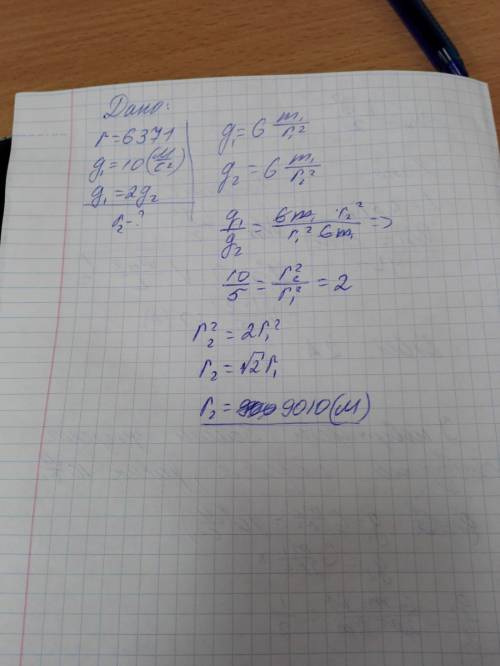 Дано:
r = 6371
g₁ = 10 (м/с²)
g₁ = 2g₂
r₂ - ?
g₁ = G m₁/r₁²
g₂ = G m₁/r₂²
g₁/g₂ = G m₁ · r₂² / r₁² G m₁ =>
10/5 = r₂²/r₁² = 2
r₂² = 2r₁²
r₂ = √2 r₁
r₂ = 9010 (м)